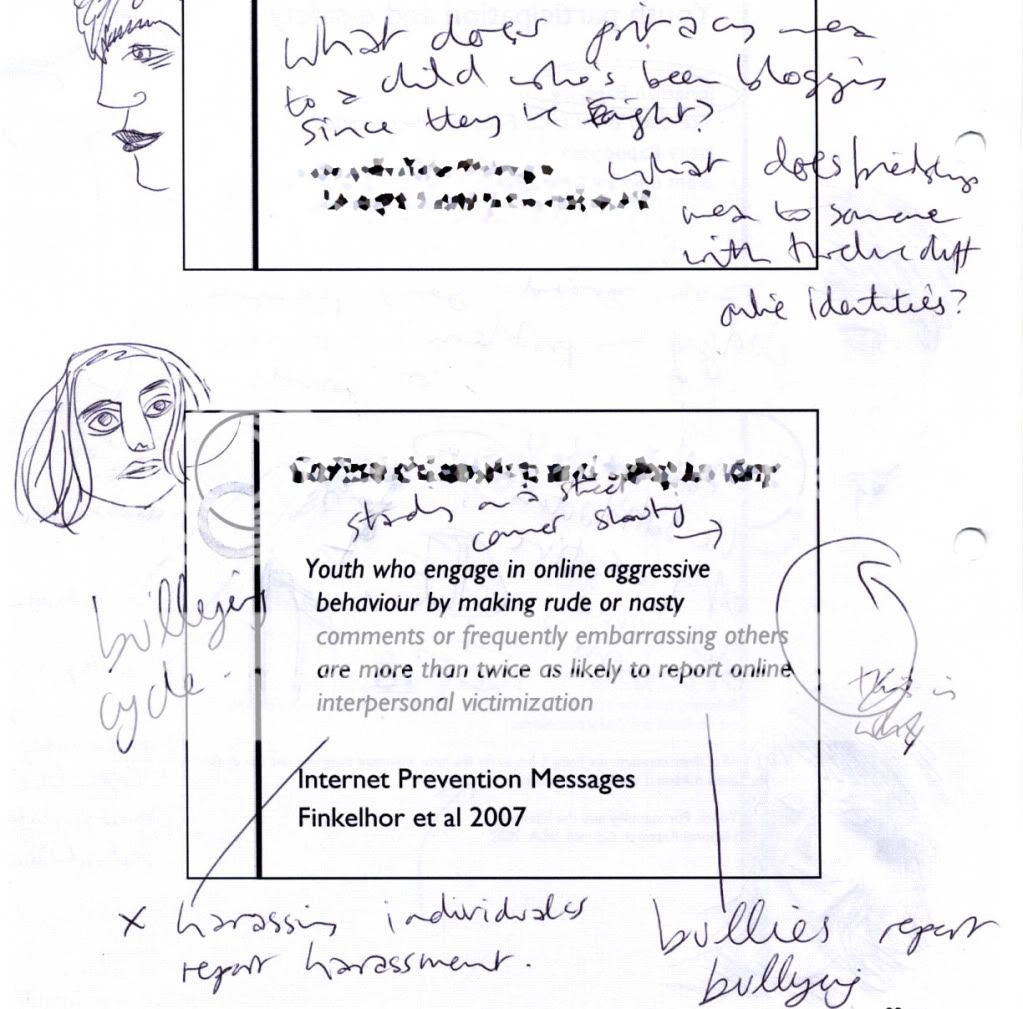 What does privacy mean
to a child who's been blogging
since they're eight?
what does friendship
mean to someone
with twelve diff
online identities?
on a street
corner shouting
Youth who engage in online aggressive
behaviour by making rude or nasty
comments or frequently embarrassing others
are more than twice as likely to report online
interpersonal victimization
bullying
cycle
this is
Internet Prevention Messages
Finkelhor et al 2007
x harassing individuals
report harassment.
bullies report
bullying